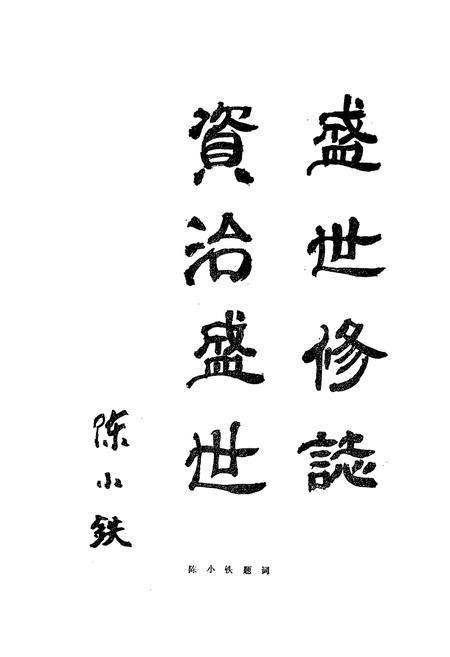 盛世修誌
資治盛世
陈小铁
陈小铁题词